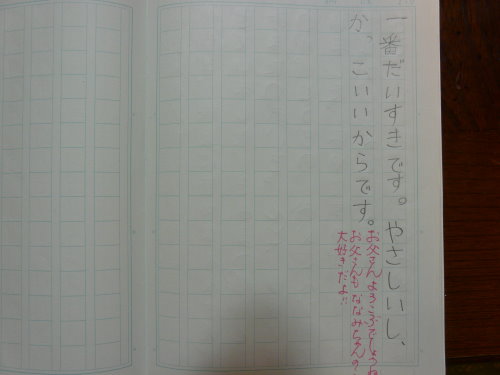 一番だいすきです。やさしいし、
かっこいいからです。
お父さんよろこぶでしょうね
お父さんもななみちゃんの
大好きだよ!!